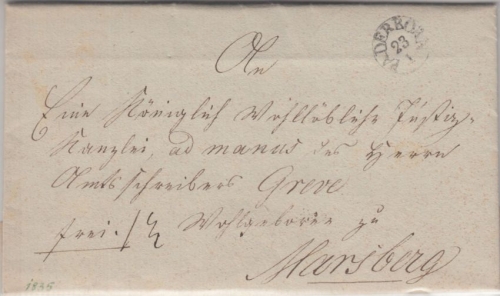 PADERBORN
23
1
An
Eine Königlich Wohllöbliche Justiz-
Kanzlei, ad manus des Herrn
Amtsschreibers Greve
frei. Wohlgeboren zu
Marsberg
1835